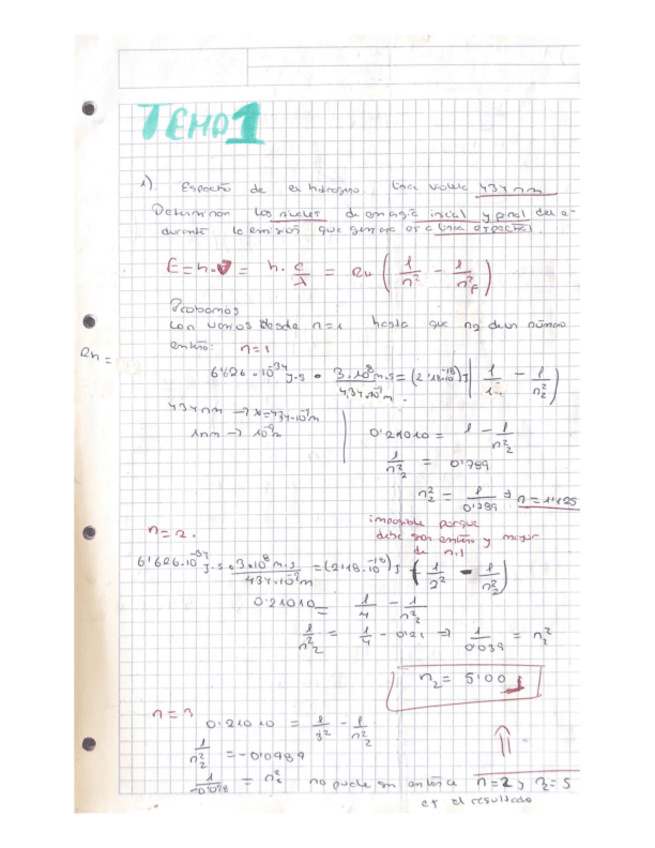 TEMA 1
1). Espectro de el hidrógeno. Una 434 nm
Determinar los niveles de energía inicial y final del e-
durante la emisión que genera esa línea espectral.
E = h·ν = h · c/λ = RH (1/n² - 1/n²F)
Probamos
con varios desde n=1 hasta que n2 de un número
Rh =
entero: n=1
6'626·10^-34 J·s · 3·10^8 m·s / 4,34·10^-7 m = (2'18·10^-18) J (1/1 - 1/n²2)
434 nm → x = 434·10^-9 m
1nm → 10^-9 m
0'21010 = 1 - 1/n²2
1/n²2 = 0'789
n²2 = 1/0'789 ⇒ n = 1'125
imposible porque
debe ser entero y mayor
de n.1
n=2.
6'626·10^-34 J·s · 3·10^8 m·s / 434·10^-9 m = (2'18·10^-18) J (1/2² - 1/n²2)
0'21010 = 1/4 - 1/n²2
1/n²2 = 1/4 - 0'21 ⇒ 1/0'039 = n²2
n2 = 5'001
n=3
0'21010 = 1/3² - 1/n²2
1/n²2 = -0'0989
1/-0'098 = n²2 no puede ser entonces n=2 y n2=5
es el resultado